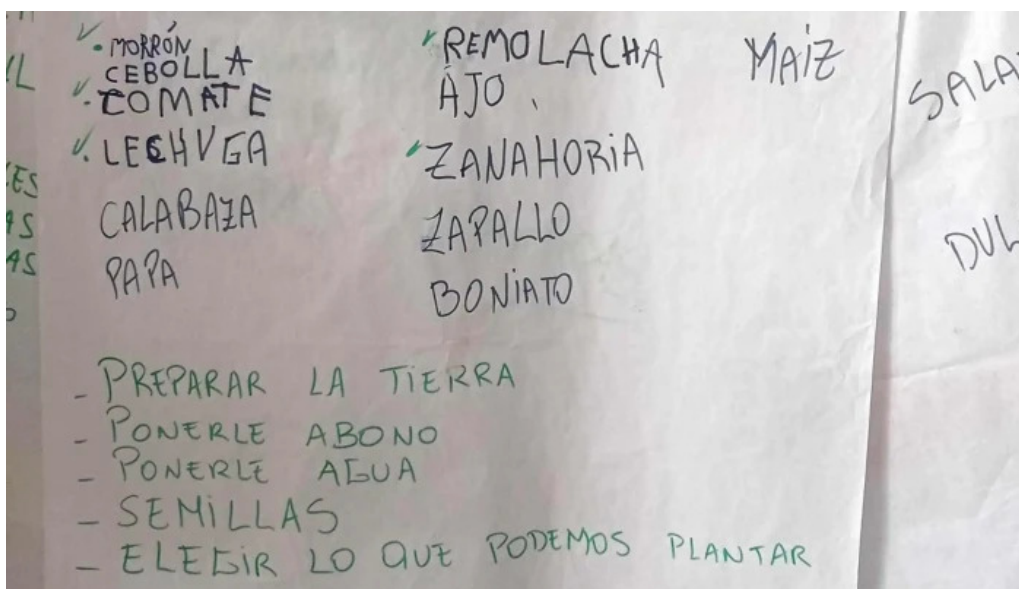 MORRÓN
CEBOLLA
TOMATE
LECHUGA
CALABAZA
PAPA
REMOLACHA
AJO
ZANAHORIA
ZAPALLO
BONIATO
MAÍZ
- PREPARAR LA TIERRA
- PONERLE ABONO
- PONERLE AGUA
- SEMILLAS
- ELEGIR LO QUE PODEMOS PLANTAR